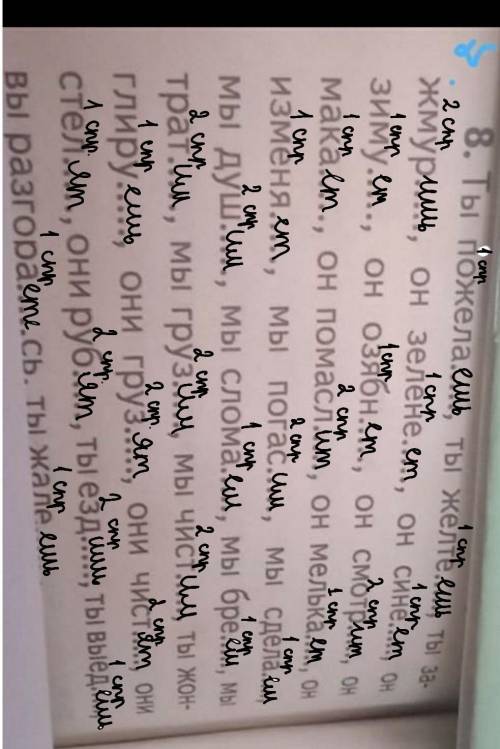 1 спр 1 спр
8. Ты пожелаешь, ты желтеешь, ты за-
2 спр 1 спр 1 спр
жмур...ишь, он зелене.ет, он сине...ет он
1 спр 1 спр 2 спр
зиму.ет.., он озябн.ет, он смотрит, он
1 спр 2 спр 1 спр
мака.ет.., он помасл.ит, он мелькает, он
1 спр 2 спр 1 спр
изменяет, мы погас.им, мы сдела.ем
2 спр 1 спр 1 спр
мы душ...им, мы слома.ем, мы бреем, мы
2 спр 2 спр 2 спр
трат...им, мы груз.им, мы чист...им ты жон-
1 спр 2 спр 2 спр
глиру...ешь, они груз...ят, они чистят, они
1 спр. 2 спр 2 спр 1 спр
стел...ят, они руб.ят, ты езд...ишь, ты выедешь
1 спр 1 спр
вы разгора.ете.сь. ты жале.ешь